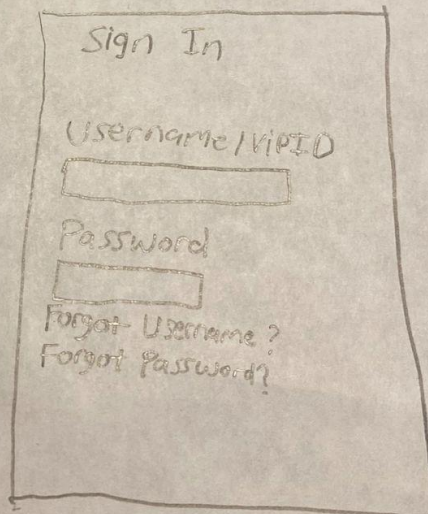 Sign In
Username/VIPID
Password
Forgot Username?
Forgot Password?